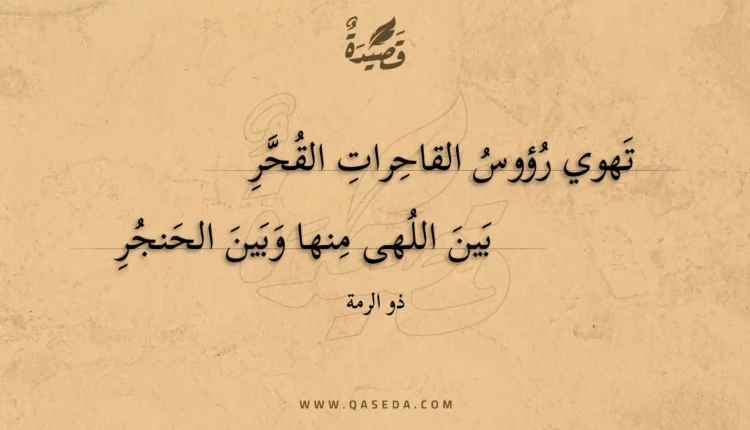 قَصِيْدَةٌ
تَهوي رُؤوسُ القاحِراتِ القُحَّرِ
بَينَ اللُهى مِنها وَبَينَ الحَنجُرِ
ذو الرمة
WWW.QASEDA.COM